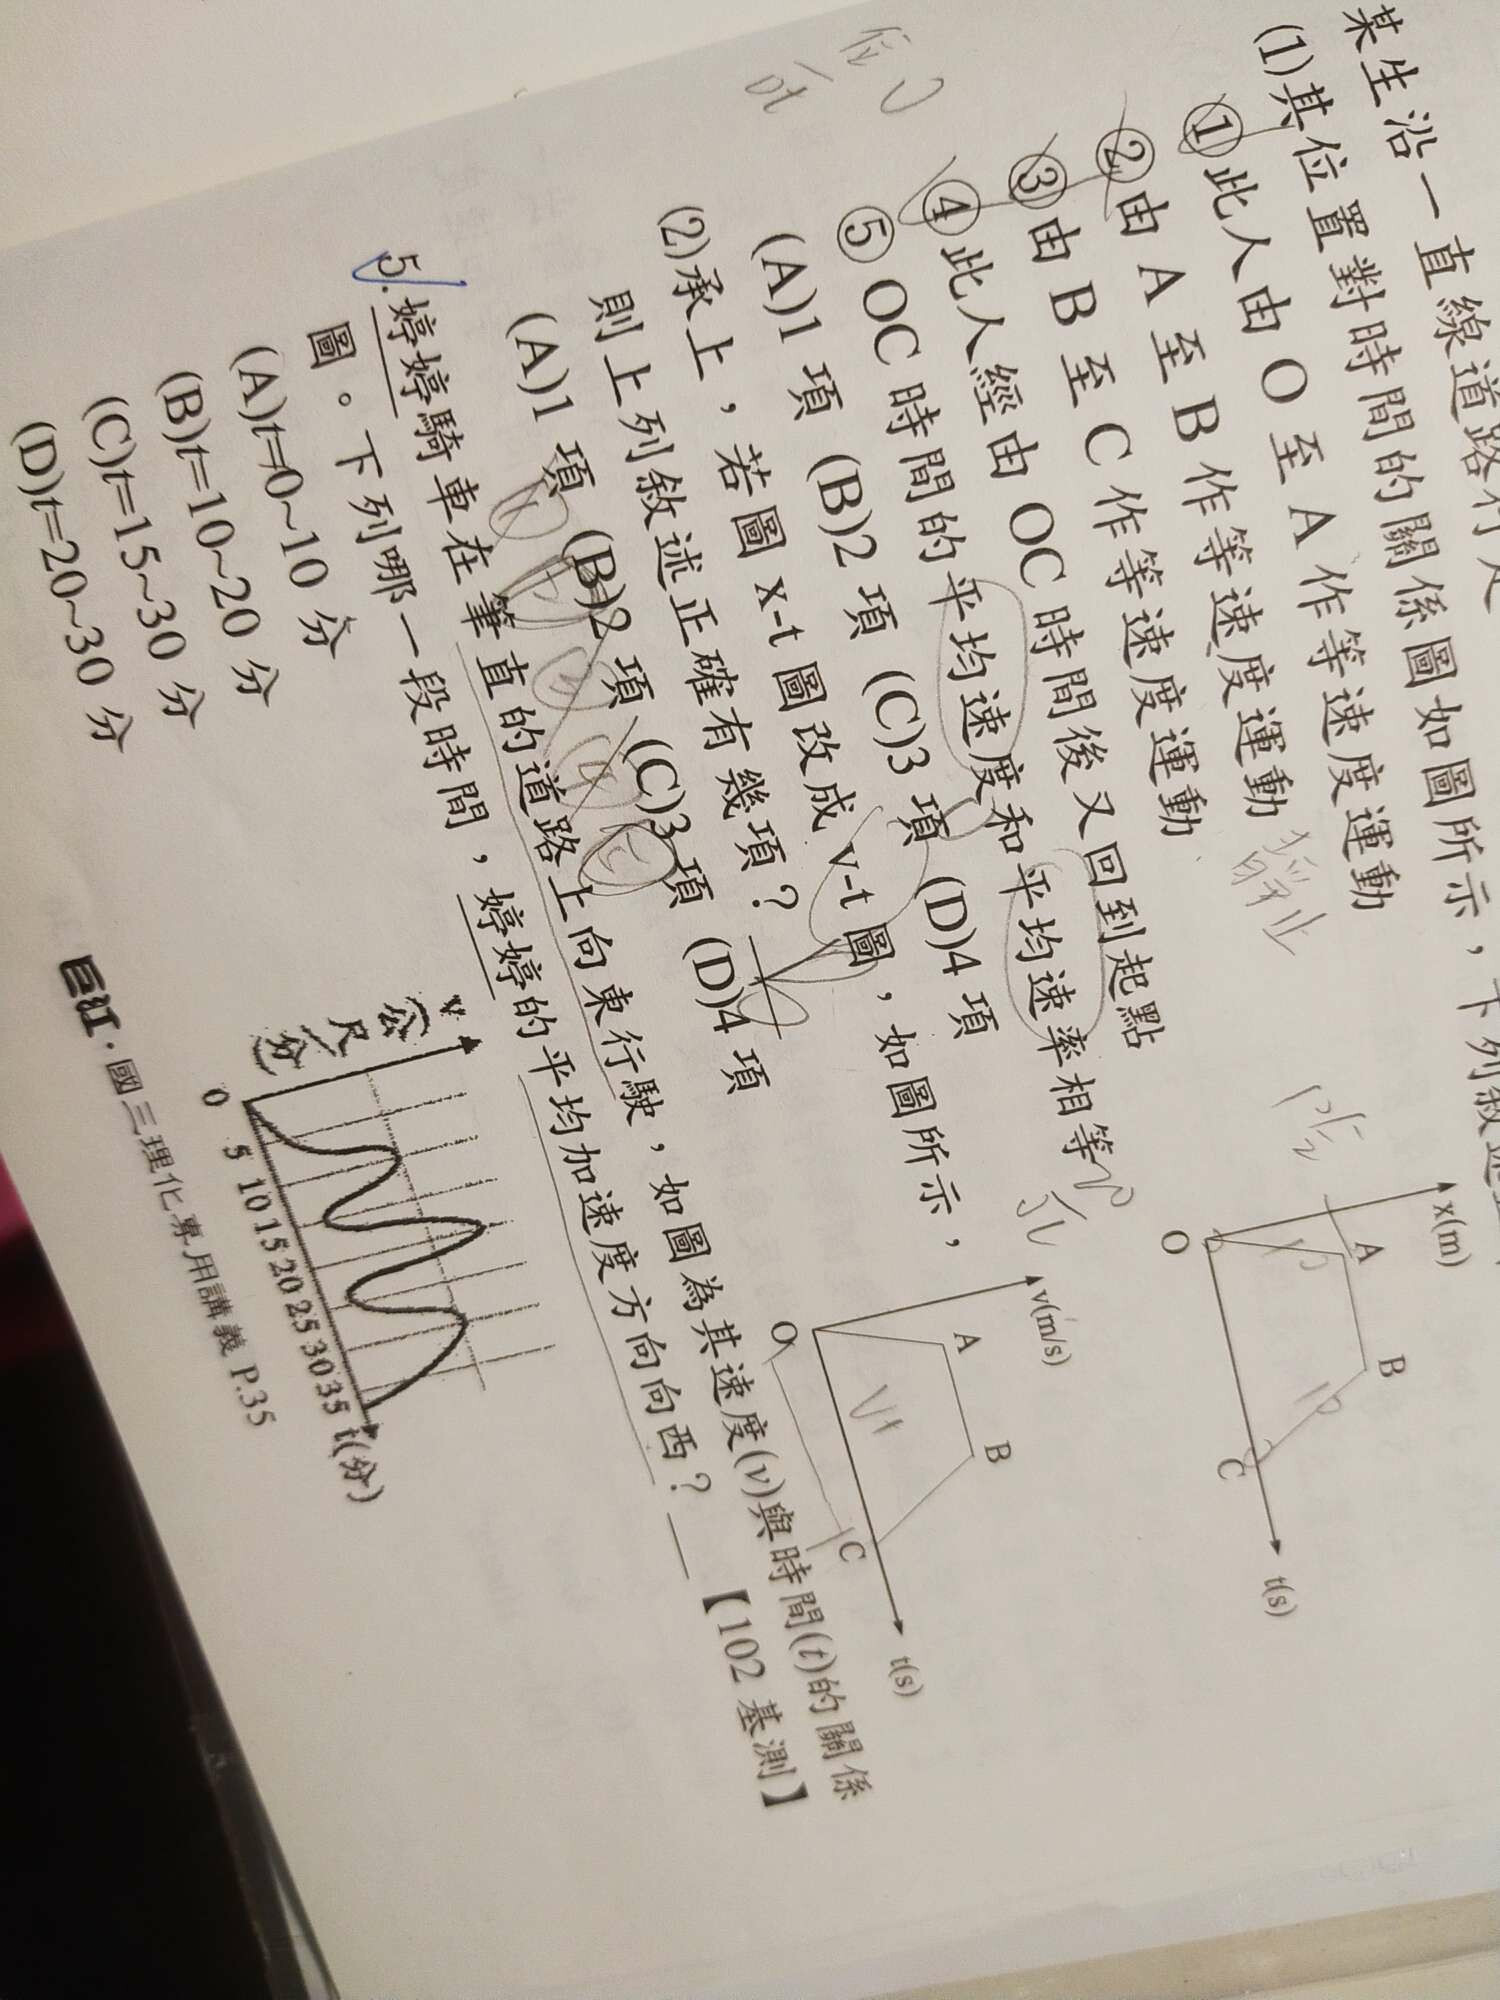 某生沿一直線道路行走
(1)其位置對時間的關係圖如圖所示，下列敘述
①此人由 O 至 A 作等速度運動
②由 A 至 B 作等速度運動
③由 B 至 C 作等速度運動
④此人經由 OC 時間後又回到起點
⑤OC 時間的平均速度和平均速率相等
(A)1 項 (B)2 項 (C)3 項 (D)4 項
x(m)
A
B
O
C
t(s)
(2)承上，若圖 x-t 圖改成 v-t 圖，如圖所示，
則上列敘述正確有幾項？
(A)1 項 (B)2 項 (C)3 項 (D)4 項
v(m/s)
A
B
O
C
t(s)
Vt
5.婷婷騎車在筆直的道路上向東行駛，如圖為其速度(v)與時間(t)的關係
圖。下列哪一段時間，婷婷的平均加速度方向向西？【102 基測】
(A)t=0~10 分
(B)t=10~20 分
(C)t=15~30 分
(D)t=20~30 分
v
(公尺/分)
0 5 10 15 20 25 30 35 t(分)
巨江·國三理化專用講義 P.35